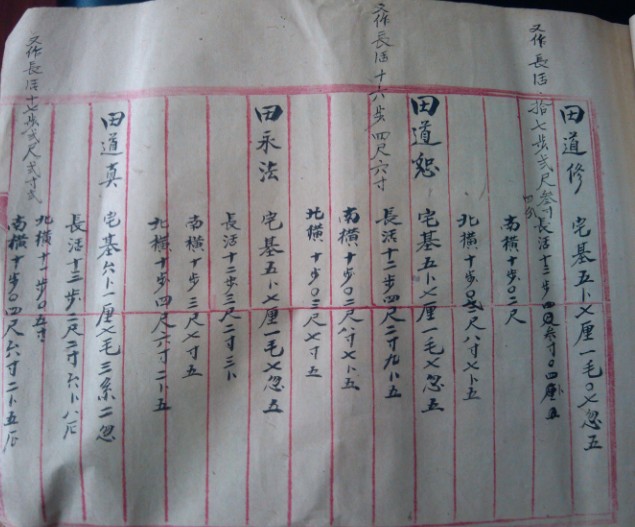 田道修 宅基五卜七厘一毛〇七忽五
又作長活拾七步弍尺叁寸四分
長活十三步四尺叁寸〇四厘五
南橫十步〇二尺
北橫十步〇弍尺八寸七卜五
田道恕 宅基五卜七厘一毛七忽五
又作長活十六步四尺六寸
長活十二步四尺二寸九卜五
南橫十步〇二尺八寸七卜五
北橫十步〇二尺七寸五
田永法 宅基五卜七厘一毛七忽五
長活十二步三尺二寸三卜
南橫十步三尺七寸五
北橫十步四尺六寸二卜五
田道真 宅基六卜一厘七毛三系二忽
又作長活十七步弍尺弍寸弍
長活十三步二尺二寸六卜八厂
北橫十一步〇五寸
南橫十步〇四尺六寸二卜五厂